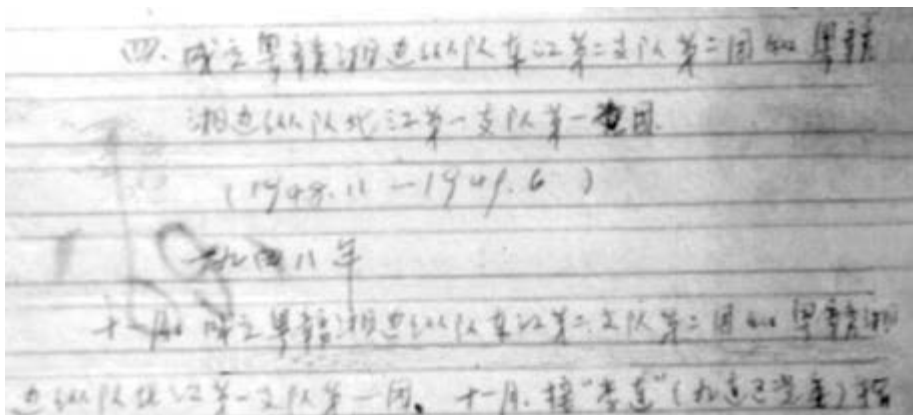 四、成立粤赣湘边纵队东江第二支队第二团和粤赣
湘边纵队北江第一支队第一团
(1948.11—1949.6)
一九四八年
十一月 成立粤赣湘边纵队东江第二支队第二团和粤赣湘
边纵队北江第一支队第一团。十一月,接“九连”(九连区党委)指